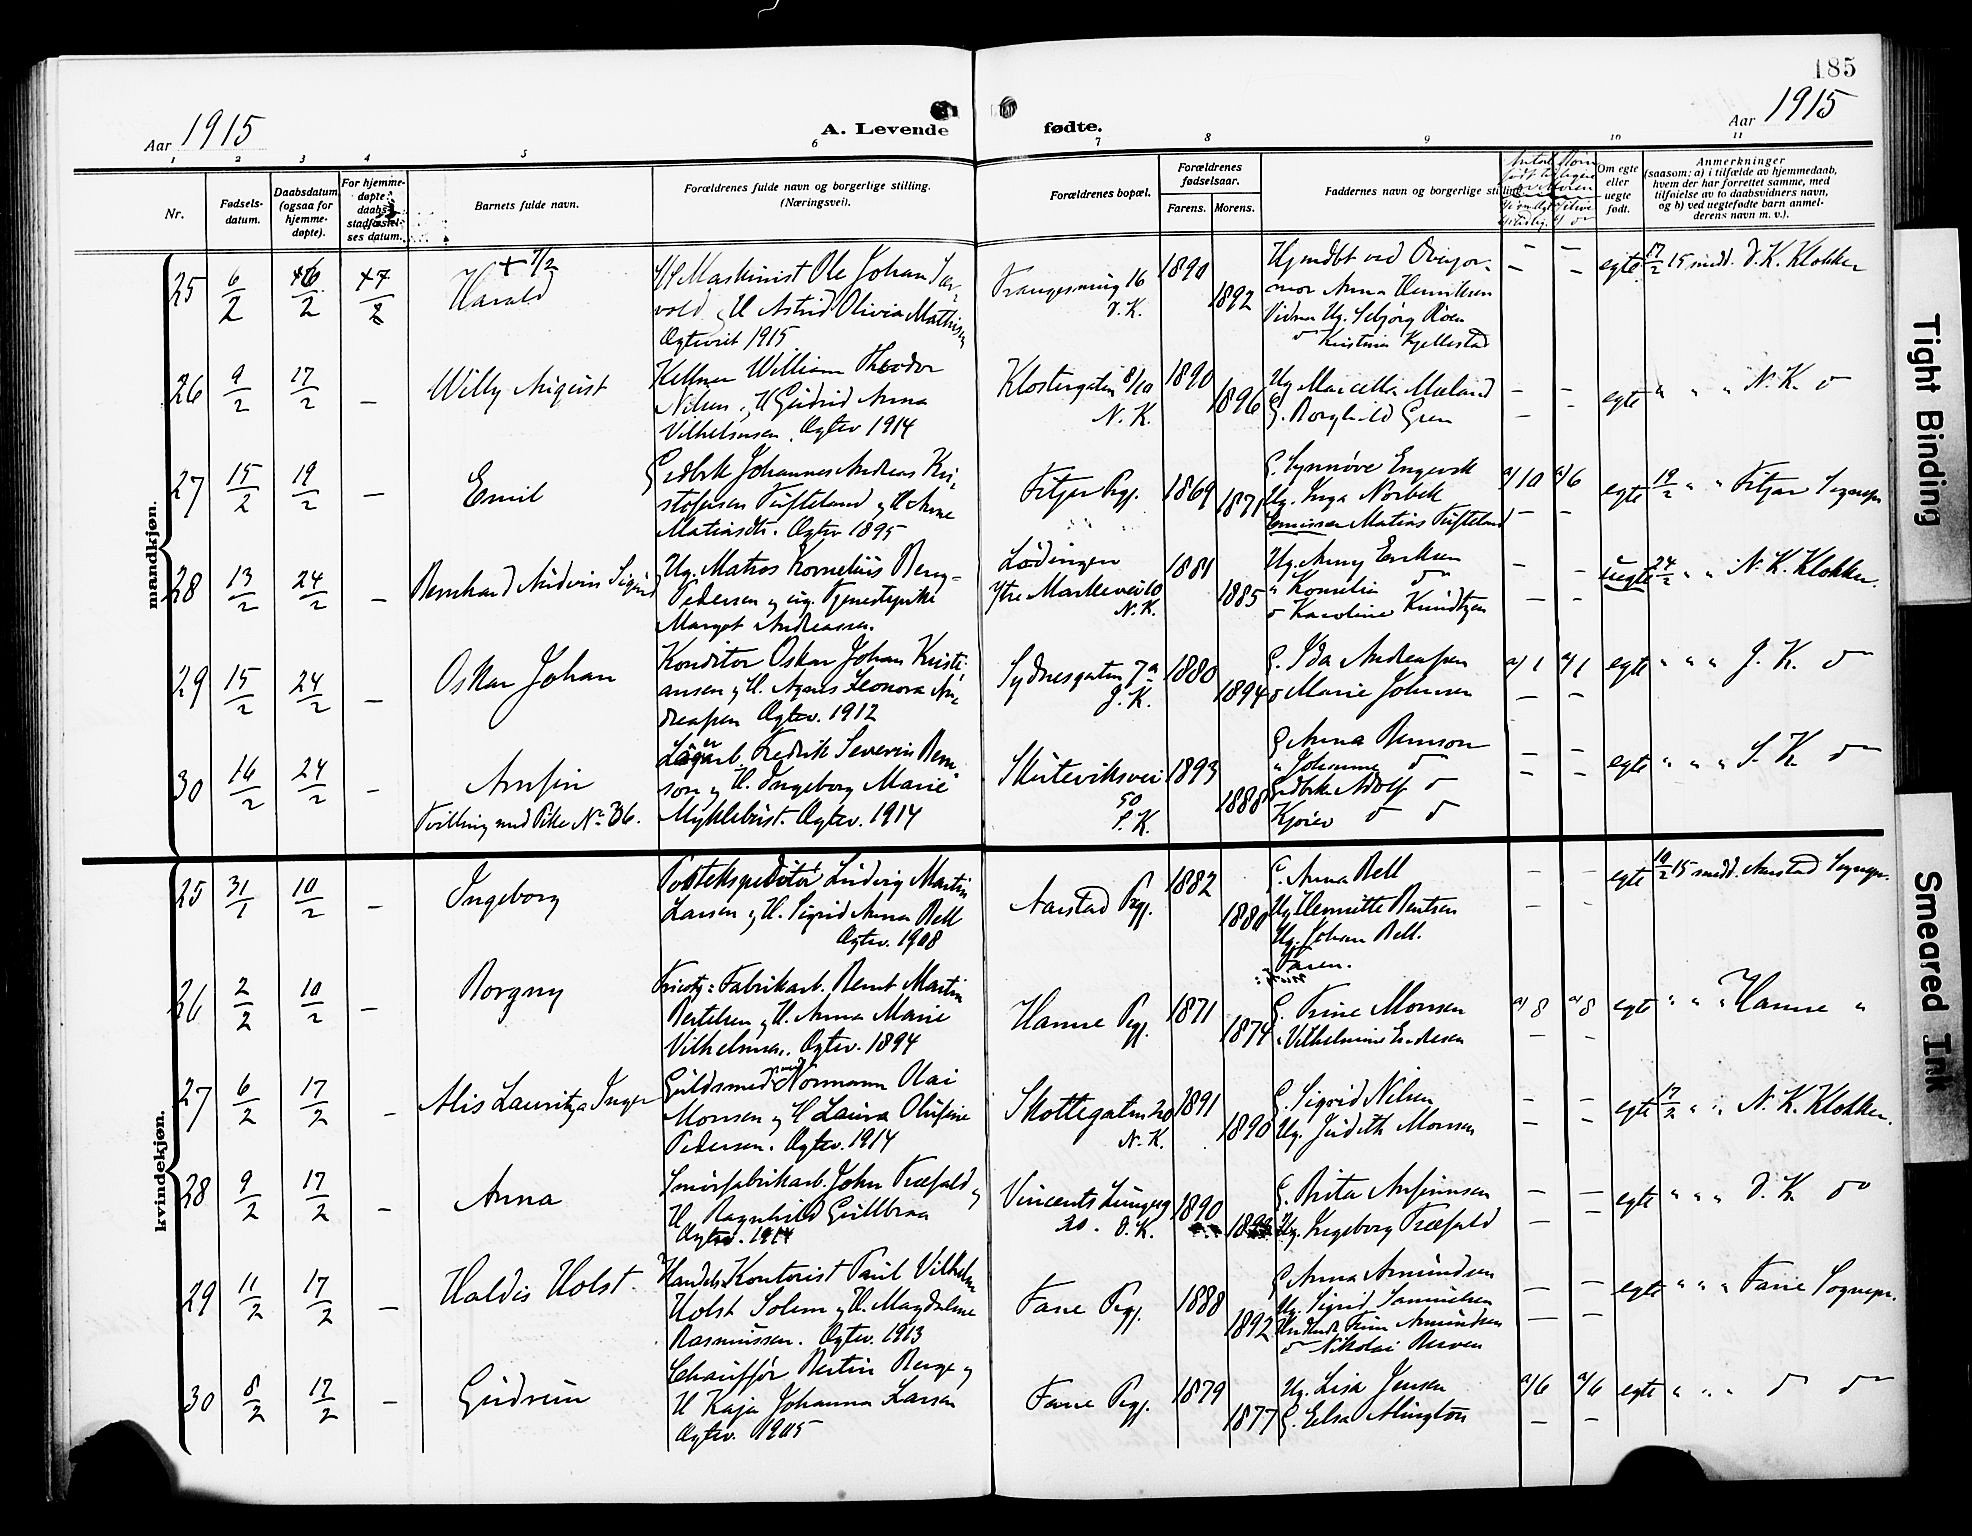 185
Aar 1915
A. Levende
fødte.
Aar 1915
1 2 3 4 5 6 7 8 9 10 11
Nr.
Fødsels-
datum.
Daabsdatum
(ogsaa for
hjemme-
døpte).
For hjemme-
døpte:
daabs-
stadfæstel-
ses datum.
Barnets fulde navn.
Forældrenes fulde navn og borgerlige stilling.
(Næringsvei).
Forældrenes bopæl.
Forældrenes
fødselsaar.
Farens. Morens.
Faddernes navn og borgerlige stilling.
Om egte
eller
uegte
født.
Anmerkninger
(saasom: a) i tilfælde av hjemmedaab,
hvem der har forrettet samme, med
tilføielse av to daabsvidners navn,
og b) ved uegtefødte barn anmel-
derens navn m. v.).
mandkjøn.
25 6/2 6/2 7/2
+ 7/2
Harald
Maskinist Ole Johan
vold og H Astrid Olivia Mathisen
Ægteviet 1915
16
D. K.
1890
1892
Hjemdbt ved
mor Anna Henriksen
Vidner Ug.
Kristine Kjellestad
egte 17/2 15 medd. D. K. Klokker
26 9/2 17/2 —
Willy August
Kellner William Theodor
Nilsen og H Gudrid Anna
Vilhelmsen. Ægtev 1914
Klostergaten 8/10
N. K.
1890
1896
Ug. Marcella Mæland
G. Borghild Gren
egte " " N. K. do
27 15/2 19/2 —
Emil
Grdbrk Johannes Andreas Kri-
stofersen Tufteland og H Anne
Matiasdtr. Ægtev 1895
Fitjar Pgj.
1869
1871
G. Synnøve Engevik
Ug. Inga Norbek
Emissær Matias Tufteland
a/10 a/6
egte 19/2 " " Fitjar Sognepr
28 13/2 24/2 —
Bernhard Andreas Sigurd
Ug. Matros Kornelius Berg-
Pedersen og ug. Tjenestepike
Margot Andreassen.
Lødingen
Ytre Markevei 10
N. K.
1881
1885
Ug. Anny Eriksen
" Kornelia do
do Karoline Knudtzen
uegte 24/2 " " N. K. Klokker.
29 15/2 24/2 —
Oskar Johan
Konditor Oskar Johan Kristi-
ansen og H. Agnes Leonora An-
dreassen Ægtev. 1912
Sydnesgaten 7a
J. K.
1880
1894
G. Ida Andreassen
do Marie Johnsen
a/1 a/1
egte " " " J. K. do
30 16/2 24/2 —
Arnfin
Tvilling med Pike No 36.
Lagerarb. Fredrik Severin Bern-
son og H. Ingeborg Marie
Myklebust. Ægtev. 1914
Skuteviksvei
50
S. K.
1893
1888
G Anna Bernson
" Johanne do
Grdbrk Adolf do
egte " " " S. K. do
kvindekjøn.
25 31/1 10/2 —
Ingeborg
Postekspeditør Ludvig Martin
Larsen og H. Sigrid Anna Bell
Ægtev. 1908
Aarstad Pgj.
1882
1880
G. Anna Bell
Ug Henriette Bentsen
Ug. Johan Bell.
Faren.
egte 10/2 15 medd. Aarstad Sognepr.
26 2/2 10/2 —
Borgny
Tricotg: Fabrikarb. Bernt Martin
Bertelsen og H. Anna Marie
Vilhelmsen. Ægtev. 1894
Hamre Pgj.
1871
1874
G. Trine Monsen
" Vilhelmine Endresen
a/8 a/8
egte " " " Hamre "
27 6/2 17/2 —
Alis Lauritza Inger
Guldsmed Normann Olai
Monsen og H Laura Olufine
Pedersen. Ægtev. 1914
Skottegaten 20
N. K.
1891
1890
G. Sigrid Nilsen
Ug. Judith Monsen
egte 17/2 " " N. K. Klokker.
28 9/2 17/2 —
Anna
Smørfabrikarb. John Træfald og
H. Ragnhild Gullbraa
Ægtev. 1914
Vincents Lungesg
20. D. K.
1890
G. Brita Anfinnsen
Ug. Ingeborg Træfald
egte " " " D. K. do
29 11/2 17/2 —
Haldis Holst.
Handels Kontorist Paul Vilhelm
Holst Solem og H. Magdalene
Rasmussen. Ægtev. 1913
Fane Pgj.
1888
1892
G. Anna Amundsen
Ug. Sigrid Samuelsen
Amundsen
do Nikolai Berven
egte " " " Fane Sognepr.
30 8/2 17/2 —
Gudrun
Chauffør Bertin Berge og
H Kaja Johanna Larsen
Ægtev. 1905
Fane Pgj.
1879
1877
Ug. Lisa Jensen
G. Elsa Alington
a/6 a/6
egte " " " do do
Tight Binding
Smeared Ink